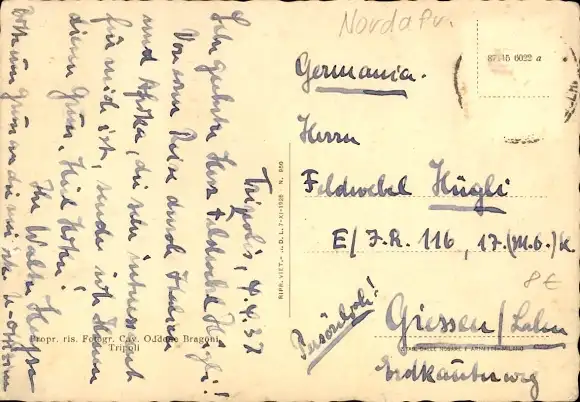 Nordafr.
87245 6022 a
Germania.
Herrn
Feldwebel Hügli
E/J.R. 116, 17.(M.G.)K.
8 €
Persönlich!
Giessen/Lahn
Erdkauterweg
RIPR. VIET. D. L. 7-XI-1925 - N. 950
Propr. ris. Fotogr. Cav. Oddone Bragoni
Tripoli
Tripolis, 4.4.37
Sehr geehrter Herr Feldwebel Hügli!
Von einer Reise durch Italien
und Afrika, die sehr interessant
für mich ist, sende ich Ihnen
diesen Gruss. Heil Hitler!
Ihr Walter